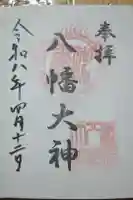 奉拝
八幡大神
令和八年四月十二日